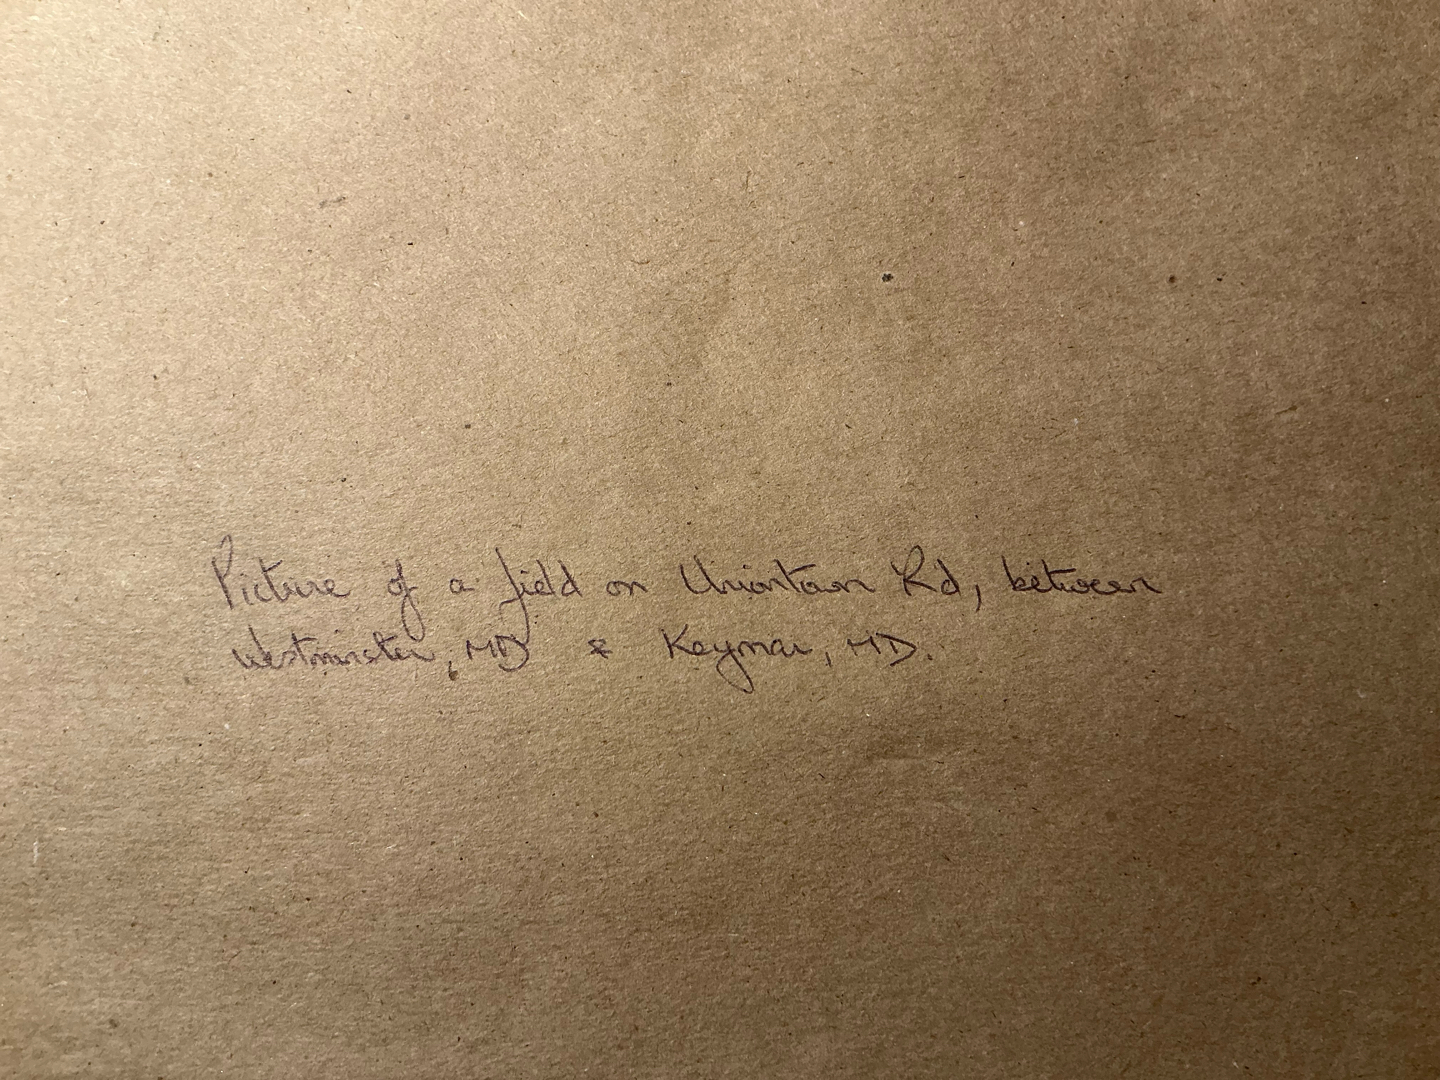 Picture of a field on Uniontown Rd, between
Westminster, MD & Keymar, MD.